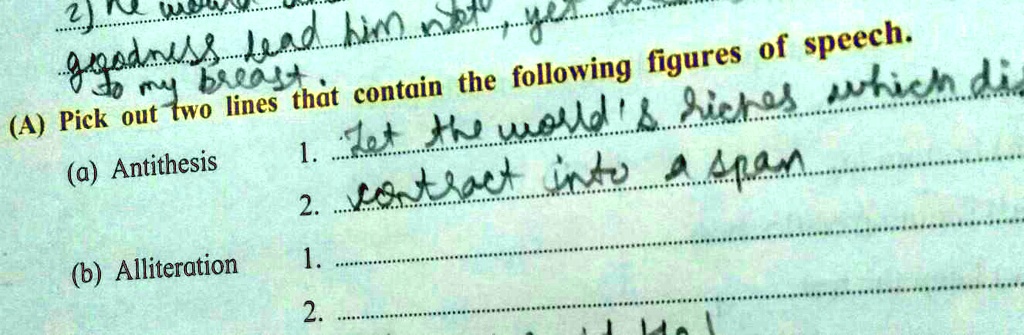 2) he would
goodness lead him not, yet
to my breast.
(A) Pick out two lines that contain the following figures of speech.
(a) Antithesis 1. Let the world's riches which dis
2. contract into a span
(b) Alliteration 1.
2.